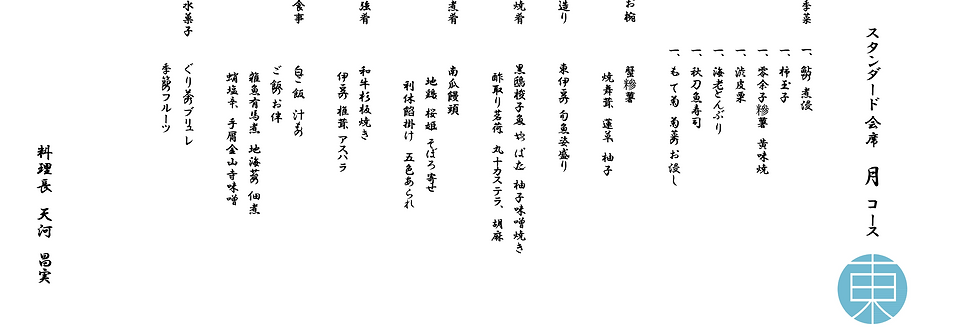 スタンダード会席 月 コース
東
季菜
一、鮎煮浸
一、柿玉子
一、零余子糝薯 黄味焼
一、渋皮栗
一、海老どんぶり
一、秋刀魚寿司
一、もって菊 菊菜お浸し
お椀
蟹糝薯
焼舞茸 蓮草 柚子
造り
東伊豆 旬魚姿盛り
焼肴
黒鴎梭子魚 やばた 柚子味噌焼き
酢取り茗荷 丸十カステラ、胡麻
煮肴
南瓜饅頭
地鶏 桜姫 そぼろ寄せ
利休餡掛け 五色あられ
強肴
和牛杉板焼き
伊豆 椎茸 アスパラ
食事
白ご飯 汁もの
ご飯お伴
雑魚有馬煮 地海苔 佃煮
蛸塩辛 手屑金山寺味噌
水菓子
ぐり茶ブリュレ
季節フルーツ
料理長 天河 昌実